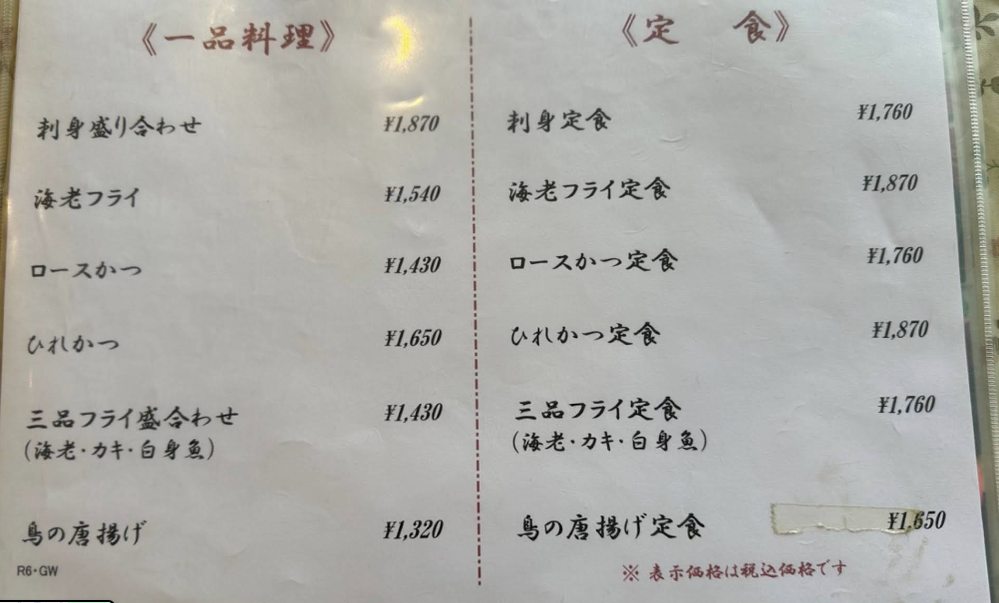 《一品料理》
刺身盛り合わせ ¥1,870
海老フライ ¥1,540
ロースかつ ¥1,430
ひれかつ ¥1,650
三品フライ盛合わせ ¥1,430
(海老・カキ・白身魚)
鳥の唐揚げ ¥1,320
R6・GW
《定 食》
刺身定食 ¥1,760
海老フライ定食 ¥1,870
ロースかつ定食 ¥1,760
ひれかつ定食 ¥1,870
三品フライ定食 ¥1,760
(海老・カキ・白身魚)
鳥の唐揚げ定食 ¥1,650
※ 表示価格は税込価格です